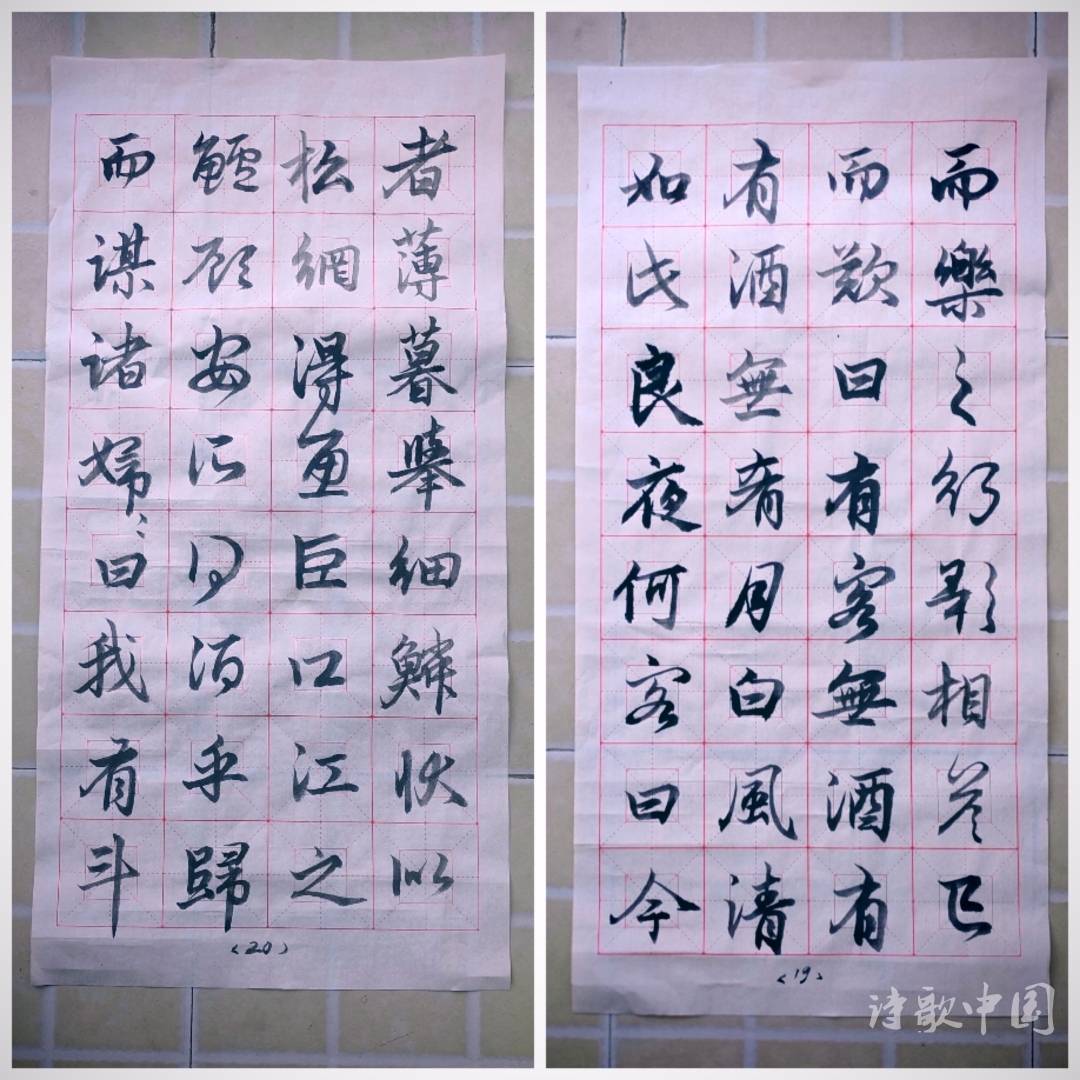 而樂之行歌相答已
而歎曰有客無酒有
有酒無肴月白風清
如此良夜何客曰今
<19>
者薄暮舉細鱗狀似
松網得魚巨口江之
鱸顧安所得酒乎歸
而谋诸婦、曰我有斗
<20>
诗歌中国